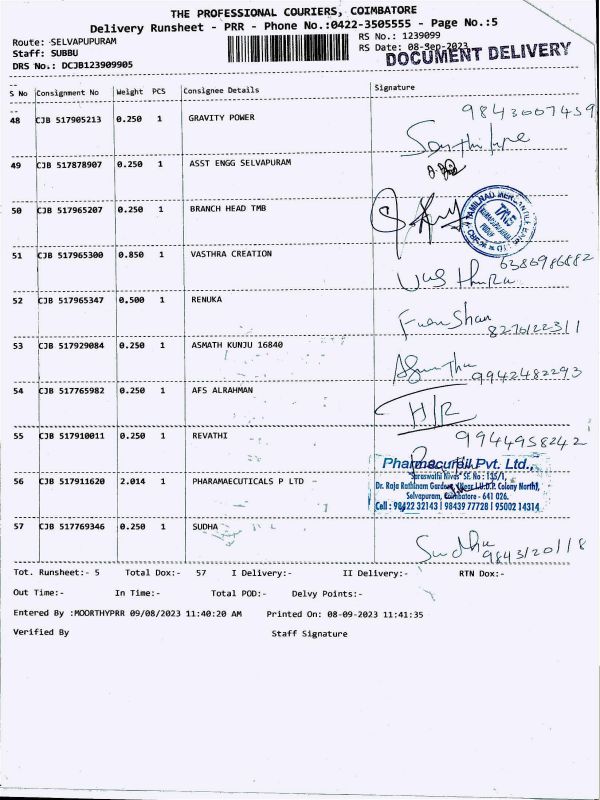 THE PROFESSIONAL COURIERS, COIMBATORE
Delivery Runsheet - PRR - Phone No.:0422-3505555 - Page No.:5
Route: SELVAPUPURAM
RS No.: 1239099
Staff: SUBBU
RS Date: 08-Sep-2023
DOCUMENT DELIVERY
DRS No.: DCJB123909905
S No Consignment No Weight PCS Consignee Details Signature
48 CJB 517905213 0.250 1 GRAVITY POWER 9843007459
49 CJB 517878907 0.250 1 ASST ENGG SELVAPURAM
50 CJB 517965207 0.250 1 BRANCH HEAD TMB
51 CJB 517965300 0.850 1 VASTHRA CREATION 6386986882
52 CJB 517965347 0.500 1 RENUKA
53 CJB 517929084 0.250 1 ASMATH KUNJU 16840 9942482293
54 CJB 517765982 0.250 1 AFS ALRAHMAN H/R
55 CJB 517910011 0.250 1 REVATHI 9944958242
56 CJB 517911620 2.014 1 PHARAMAECUTICALS P LTD -
Pvt. Ltd.,
Saraswathi Nivas' SF. No : 135/1,
Dr. Raja Rathinam Garden, (Near I.U.D.P. Colony North),
Selvapuram, Coimbatore - 641 026.
Cell : 98422 32143 | 98439 77728 | 95002 14314
57 CJB 517769346 0.250 1 SUDHA Sudha 9843120118
Tot. Runsheet:- 5 Total Dox:- 57 I Delivery:- II Delivery:- RTN Dox:-
Out Time:- In Time:- Total POD:- Delvy Points:-
Entered By :MOORTHYPRR 09/08/2023 11:40:20 AM Printed On: 08-09-2023 11:41:35
Verified By Staff Signature